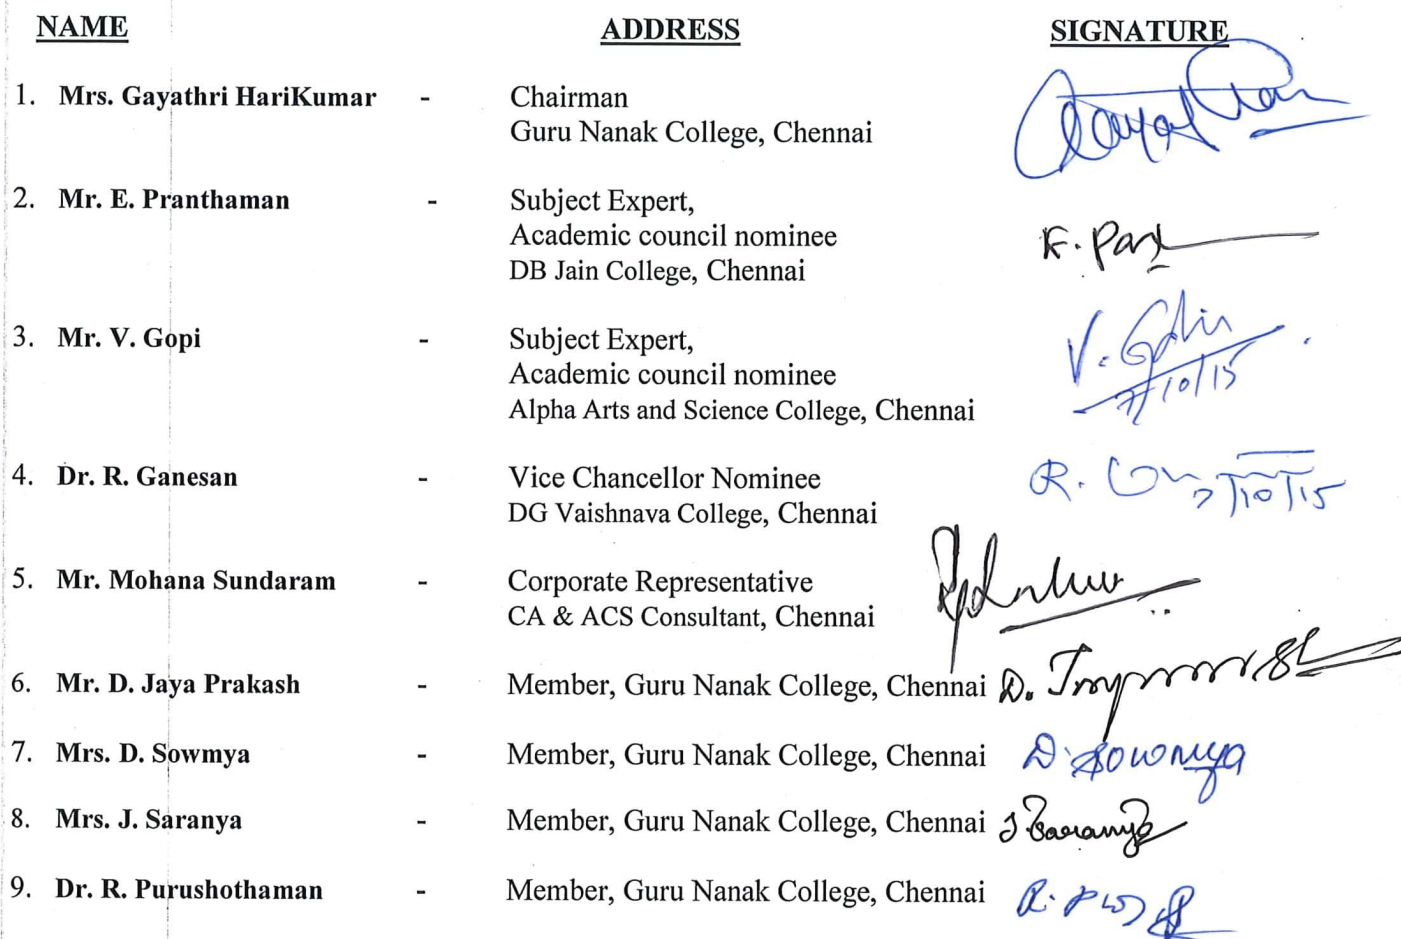 NAME ADDRESS SIGNATURE
1. Mrs. Gayathri HariKumar - Chairman
Guru Nanak College, Chennai
2. Mr. E. Pranthaman - Subject Expert,
Academic council nominee
DB Jain College, Chennai
3. Mr. V. Gopi - Subject Expert,
Academic council nominee
Alpha Arts and Science College, Chennai
V. Gopi
7/10/15
4. Dr. R. Ganesan - Vice Chancellor Nominee
DG Vaishnava College, Chennai
R. 7/10/15
5. Mr. Mohana Sundaram - Corporate Representative
CA & ACS Consultant, Chennai
6. Mr. D. Jaya Prakash - Member, Guru Nanak College, Chennai D.
7. Mrs. D. Sowmya - Member, Guru Nanak College, Chennai D. Sowmya
8. Mrs. J. Saranya - Member, Guru Nanak College, Chennai J Saranya
9. Dr. R. Purushothaman - Member, Guru Nanak College, Chennai R.